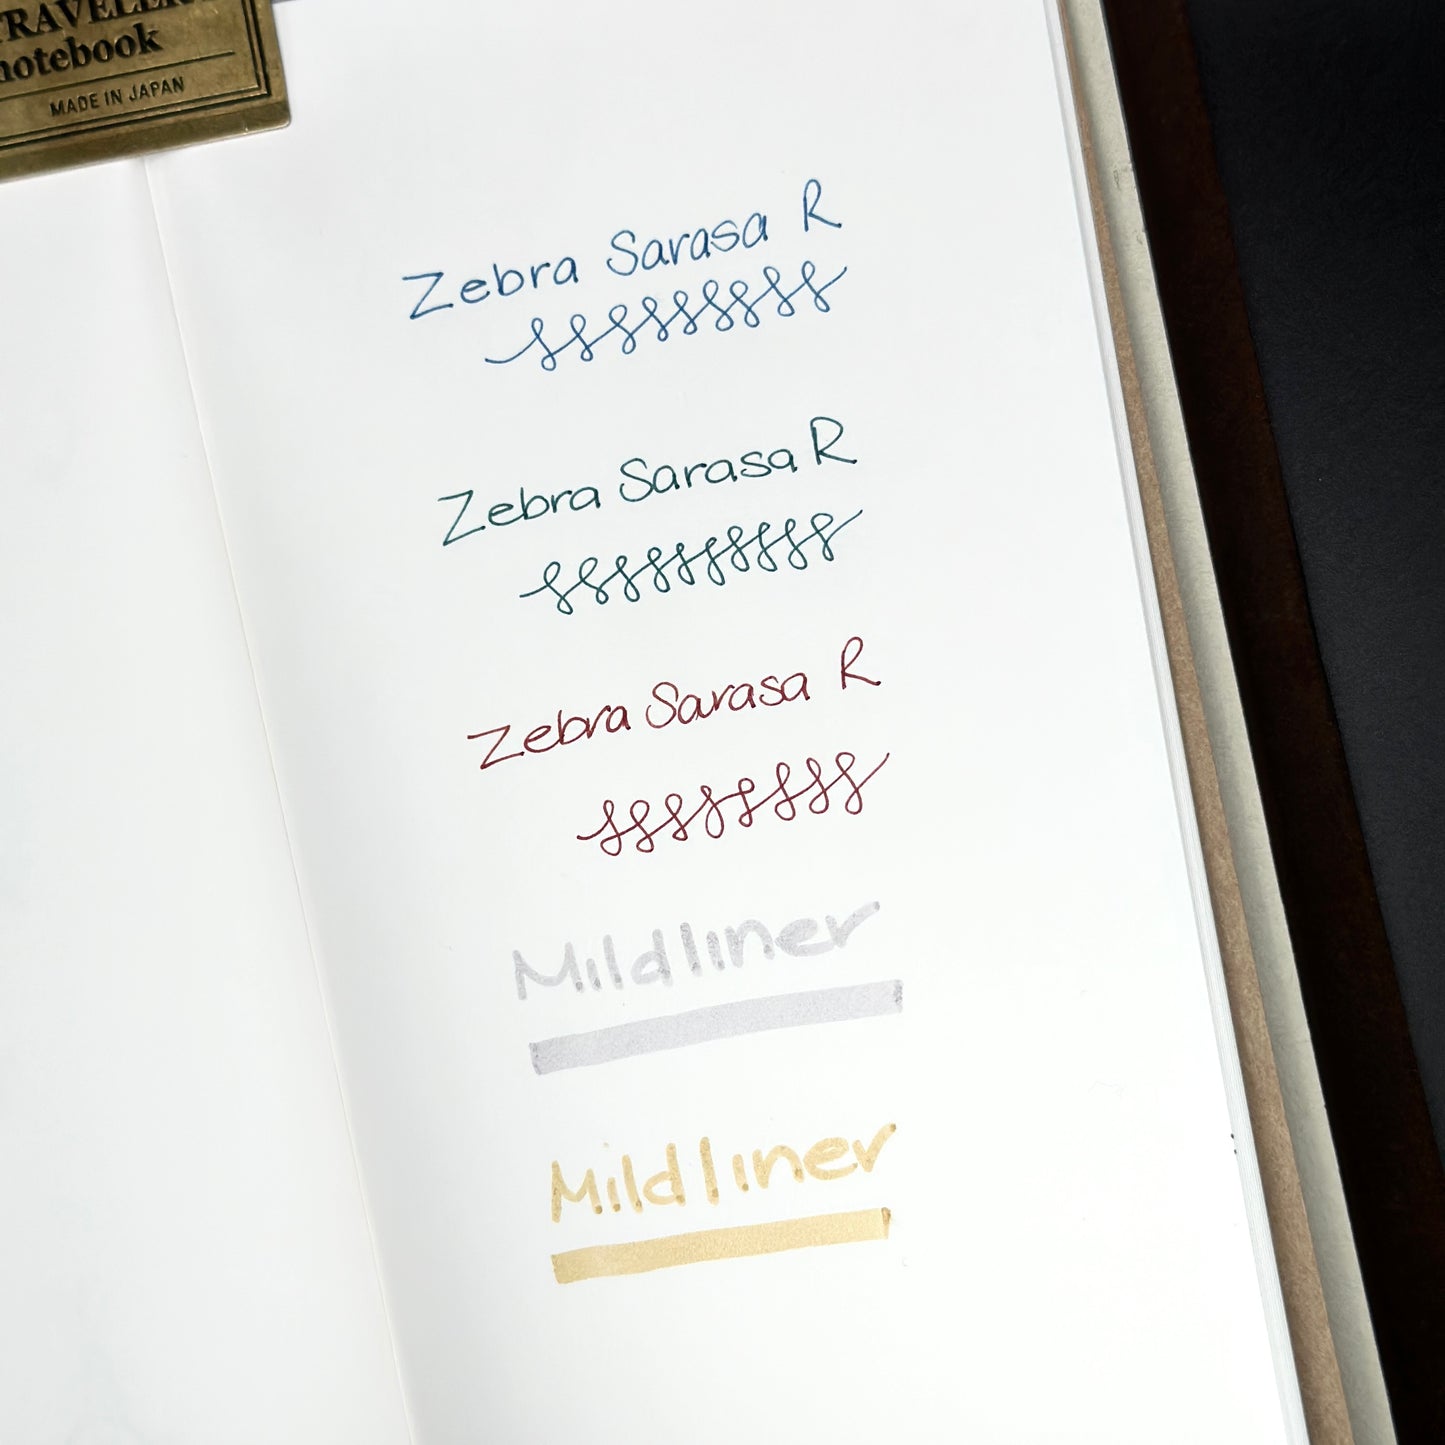 TRAVELER'S
notebook
MADE IN JAPAN
Zebra Sarasa R
Zebra Sarasa R
Zebra Sarasa R
Mildliner
Mildliner